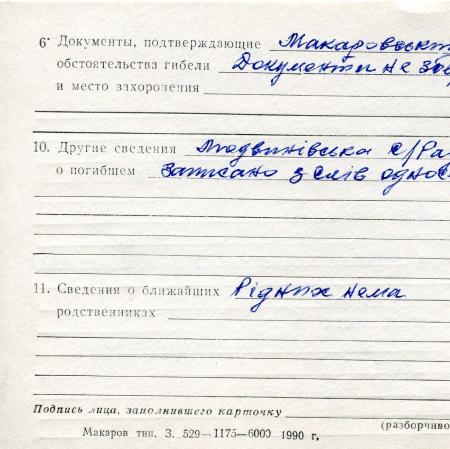 6. Документы, подтверждающие Макаровськ
обстоятельства гибели Документи не збер
и место захоронения
10. Другие сведения Людвинівська с/Ра
о погибшем Записано з слів однос
11. Сведения о ближайших Рідних нема
родственниках
Подпись лица, заполнившего карточку
(разборчиво
Макаров тип. З. 529—1175—6000 1990 г.